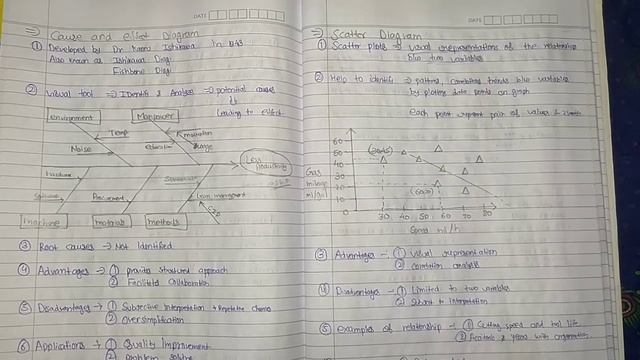 DATE
⇒ Cause and effect Diagram
① Developed by Dr Kaoru Ishikawa In 1943
Also known as Ishikawa Diag
Fishbone Diag
② Visual tool ⇒ Identify & Analyse ⇒ potential causes
leading to effect
environment
Manpower
Temp
motivation
Noise
Education
Wage
Low
Productivity
machine
materials
methods
③ Root causes → Not Identified
④ Advantages → ① provides structured approach
② Facilitates Collaboration
⑤ Disadvantages → ① Subjective Interpretation
② Oversimplification
⑥ Applications → ① Quality Improvement
② Problem solving
DATE
⇒ Scatter Diagram
① Scatter plots → visual representations of the relationship
b/w two variables
② Help to identify → pattern, trends b/w variables
by plotting data points on graph
each point represent pair of values
60
50
40
30
20
10
0
Gas
mileage
mi/gal
30 40 50 60 70 80
Speed mi/h
③ Advantages - ① visual representation
② correlation analysis
④ Disadvantages - ① Limited to two variables
② Subject to interpretation
⑤ examples of relationship - ① Cutting speed and tool life